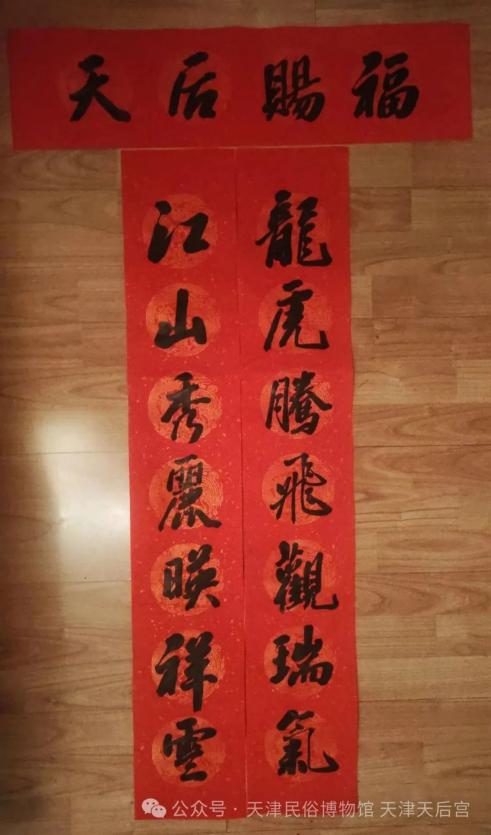 天后賜福
龍虎騰飛觀瑞氣
江山秀麗暎祥雲
公众号·天津民俗博物馆 天津天后宫